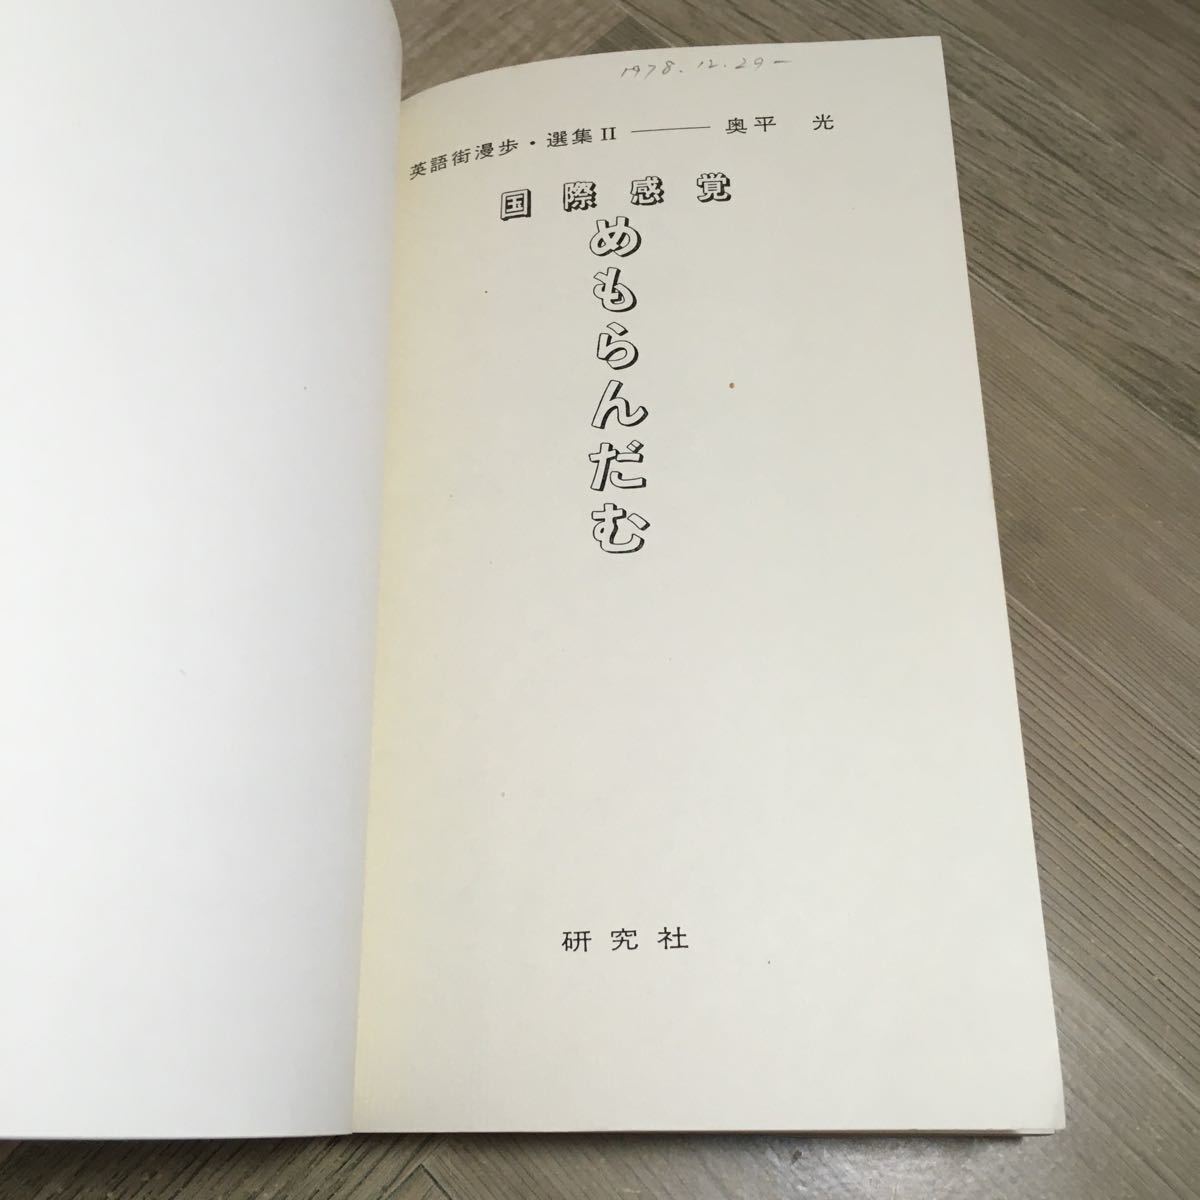 1978.12.29—
英語街漫歩・選集II —— 奥平 光
国際感覚
めもらんだむ
研究社